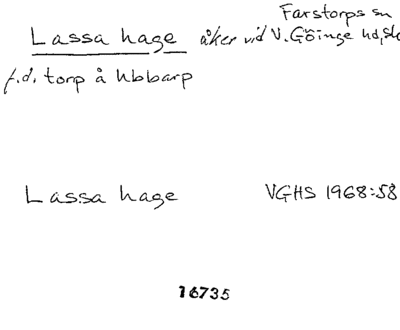 Farstorps sn
Lassa hage åker vid V. Göinge hd, Sk
f.d. torp å Ubbarp
Lassa hage VGHS 1968:58
16735